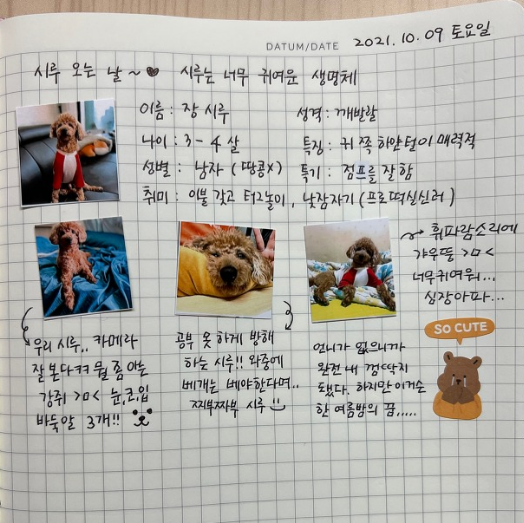 DATUM/DATE 2021.10.09 토요일
시루 오는 날 ~ ♥ 시루는 너무 귀여운 생명체
이름 : 장 시루 성격 : 개발랄
나이 : 3 - 4 살 특징 : 귀 쪽 하얀털이 매력적
성별 : 남자 ( 땅콩X ) 특기 : 점프를 잘함
취미 : 이불 갖고 터그놀이, 낮잠자기 ( 프로떡실신러 )
휘파람소리에
갸우뚱 >ㅁ<
너무귀여워...
심장아파...
우리 시루.. 카메라
잘 본다ㅋㅋ 뭘 좀 아는
강쥐 >ㅁ< 눈,코,입
바둑알 3개!!
공부 못 하게 방해
하는 시루!! 와중에
베개는 베야한다며..
찌부찌부 시루
언니가 없으니까
완전 내 껌딱지
됐다. 하지만 이것은
한 여름밤의 꿈.....
SO CUTE